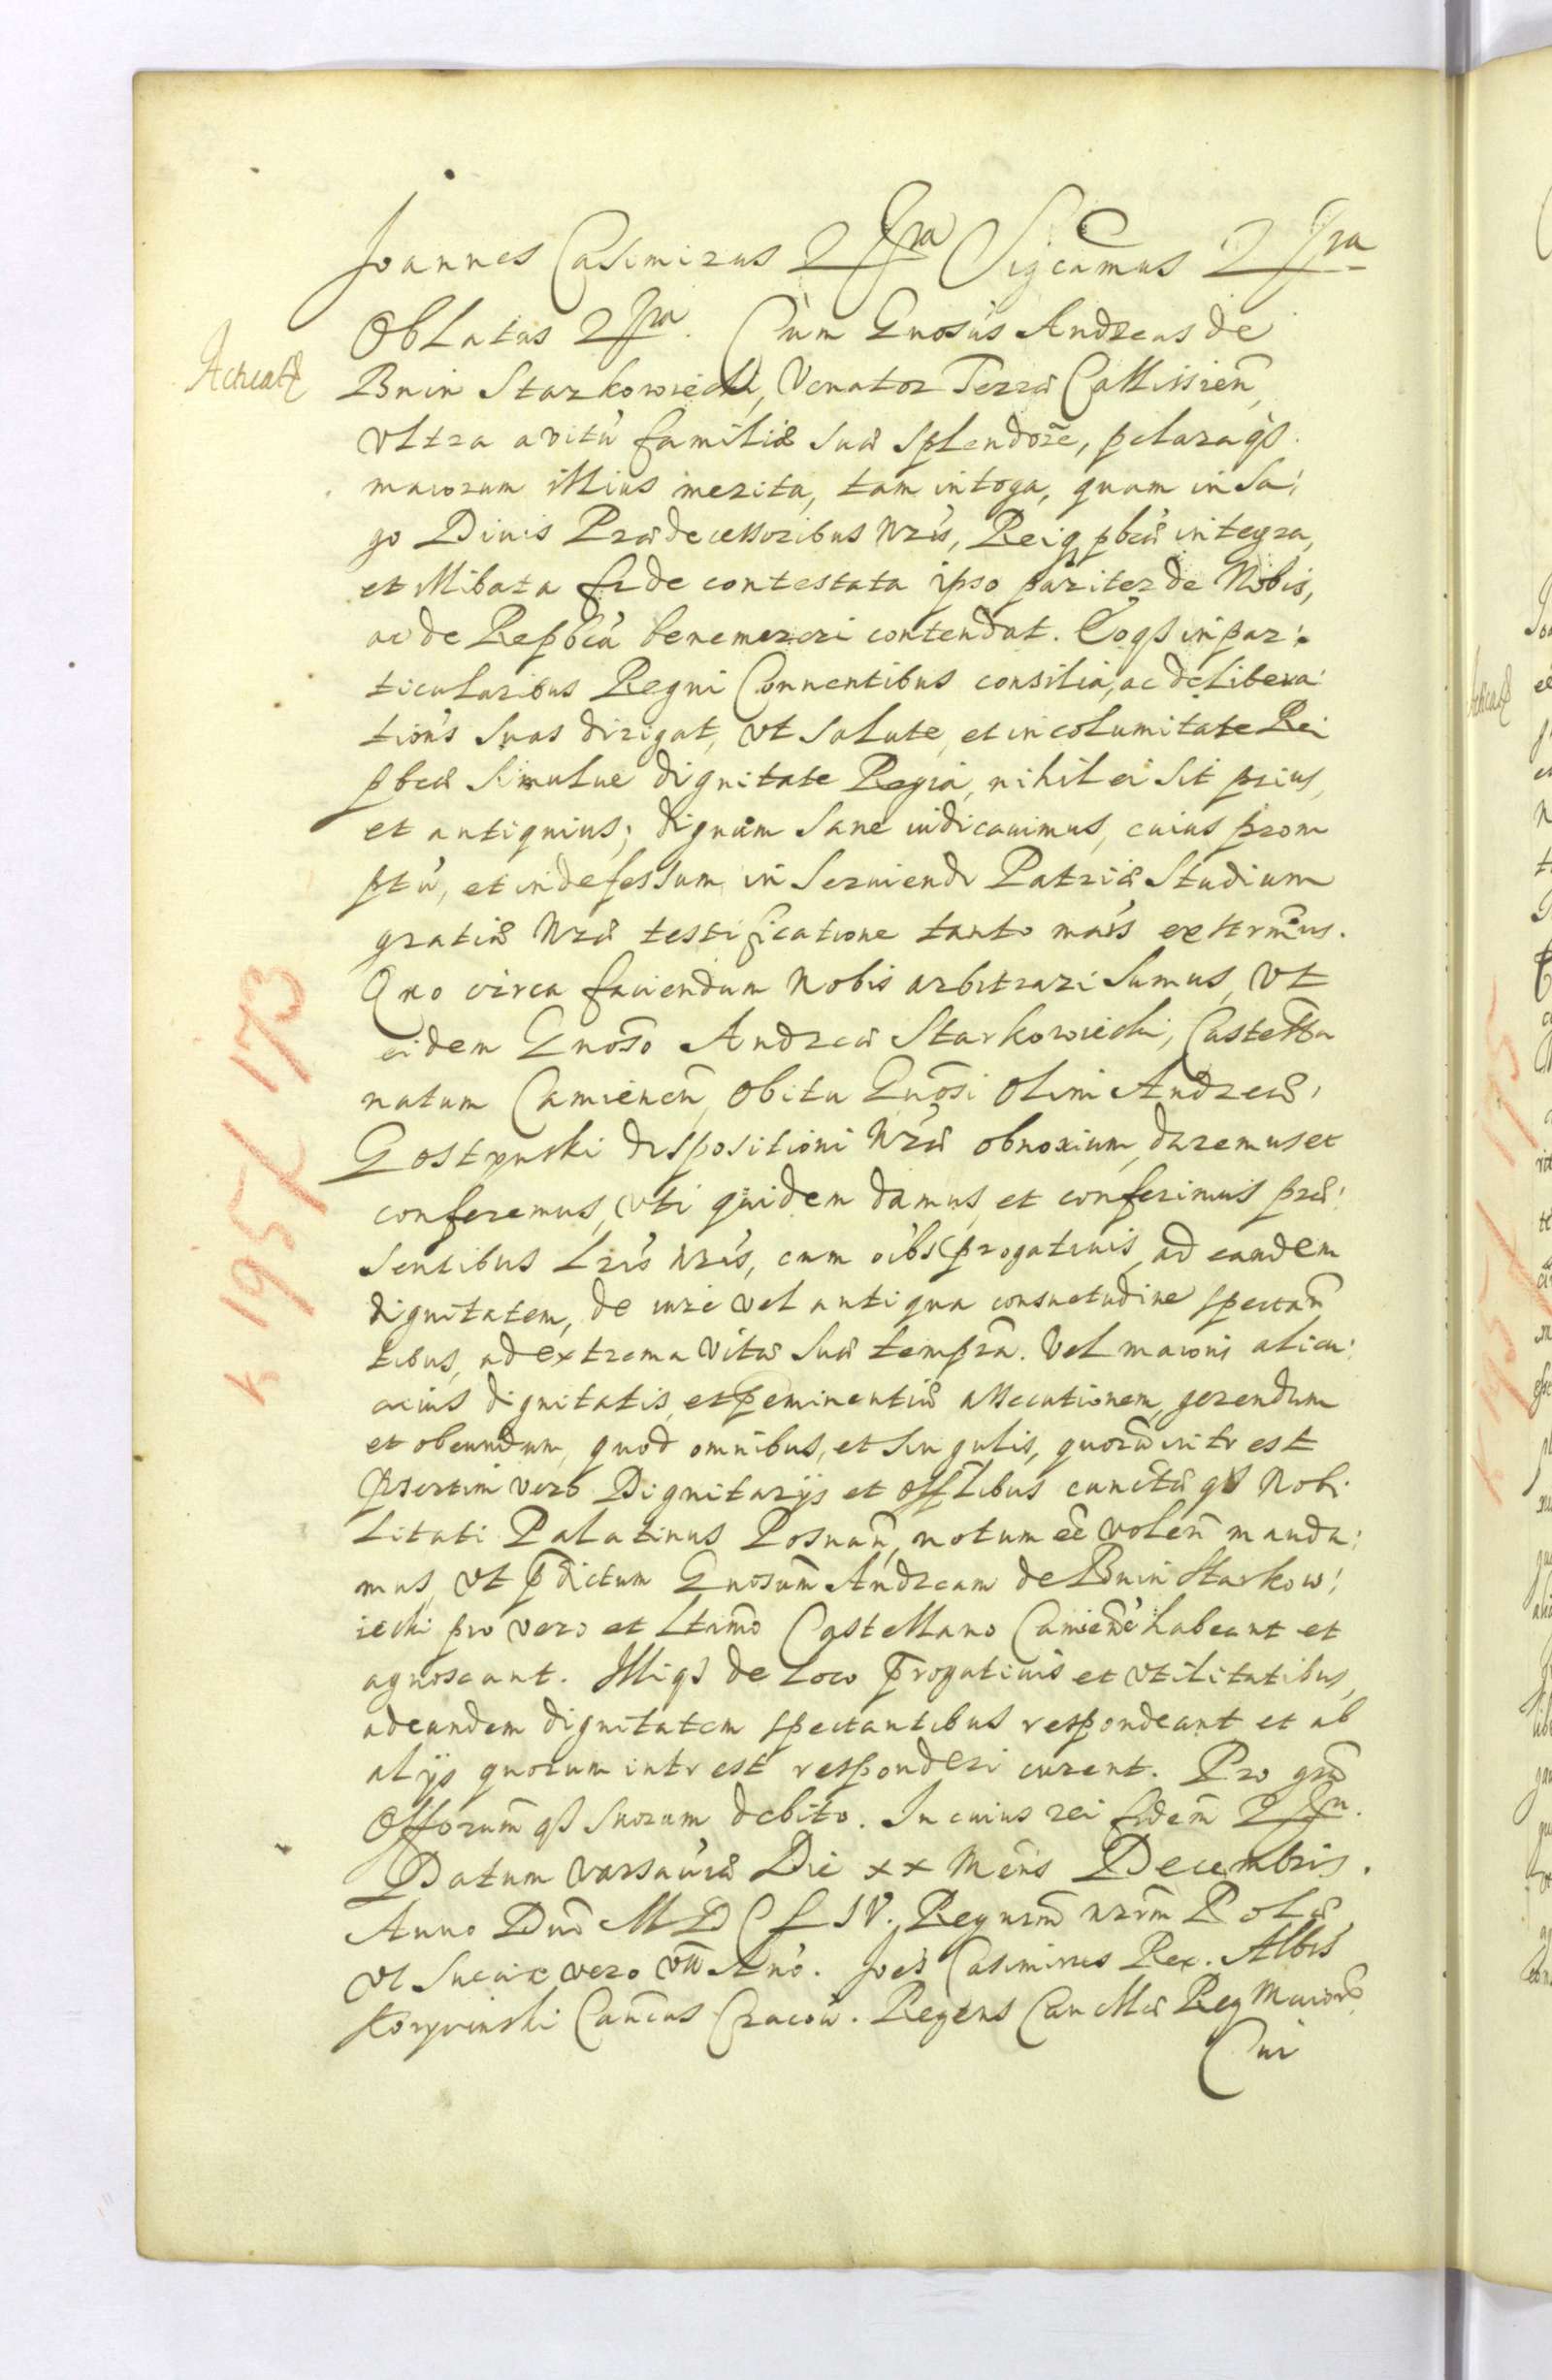 Joannes Casimirus 2 Sigcamus 2
Oblatas 2 Cum Gnosus Andreas de
Bnin Starkowiecki, Venator Terræ Callissien̄,
vltra avitú familiæ suæ splendorē, pclaraqs
maiorum illius merita, tam in toga, quam in sa:
go Diuis Prædecessoribus Nris, Reiq pbcæ integra,
et illibata fide contestata ipso pariter de Nobis,
ac de Repbca benemereri contendat. Eoqs in par:
ticularibus Regni Conuentibus consilia, ac delibera:
tion's suas dirigat, vt salute, et incolumitate Rei
pbcæ simulue dignitate Regia, nihil ei sit prius,
et antiquius; dignum sane iudicauimus, cuius prom
ptu, et indefessum in seruiendi Patriæ studium
gratiæ Nræ testificatione tanto
Quo circa faciendum Nobis arbitrari sumus, vt
eidem Gnoso Andreæ Starkowiecki, Castella
natum Camienen̄ obitu Gnosi olim Andreæ
Gostynski dispositioni Nræ obnoxium, daremus et
conferemus, vti quidem damus, et conferimus præ:
sentibus Lris nris, cum oibs progatiuis, ad eandem
dignitatem, de iure vel antiqua consuetudine spectan̄
tibus, ad extrema vitæ suæ tempra. Vel maioris alicu:
cuius dignitatis, et peminentiæ assecutionem, gerendum
et obeundum, quod omnibus, et singulis, quorū intr est
psertim vero Dignitarijs et Offlibus cunctæqs Nobi
litati Palatinus Posnan̄, notum eē volen̄ manda:
mus, vt pdictum Gnosum Andream de Bnin Starkow:
iecki pro vero et Ltimo Castellano Camienē habeant et
agnoscant. Illiqs de loco progatiuis et vtilitatibus,
ad eandem dignitatem spectantibus respondeant et ab
alijs quorum intr est responderi curent. Pro gra
Offorum qs suorum debito. In cuius rei fidem 2
Datum Varsauiæ Die xx Mens Decembris.
Anno Dni MDCLIV. Regnrm nrrm Polæ
VI Sueciæ vero VII Ano. Joes Casimirus Rex. Albts
Korycinski Cancus Cracou. Regens Canllæ Reg Maioris
Cui
Acticat
K 195 k 173